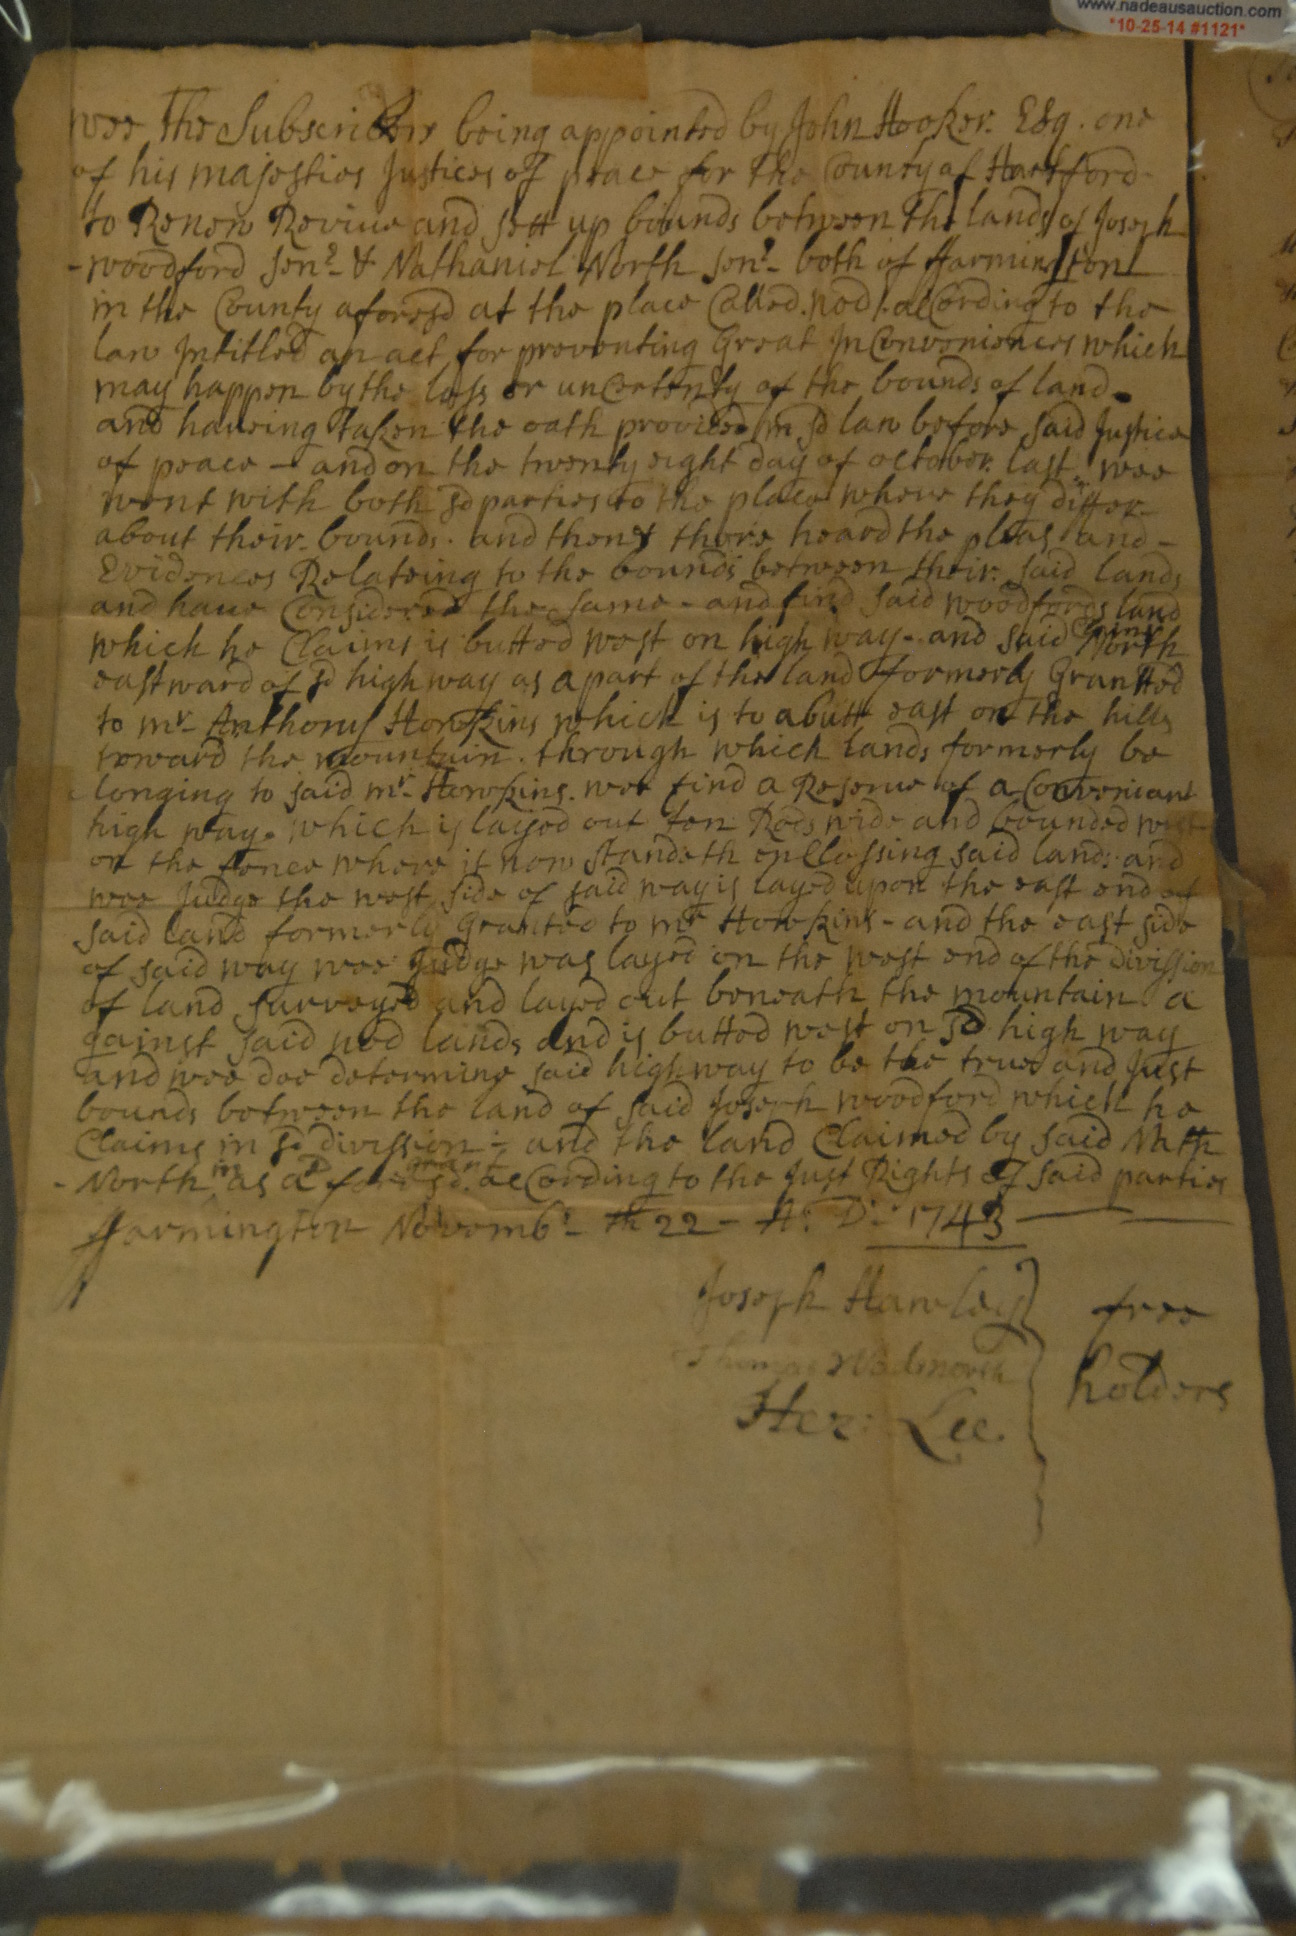 www.nadeausauction.com
*10-25-14 #1121*
wee The Subscribers being appointed by John Hooker. Esq. one
of his majesties Justices of peace for the County of Hartford
to Renew Reviue and sett up bounds between the lands of Joseph
-woodford senr. & Nathaniel North senr- both of Farmington
in the County aforesd at the place Called. nod. according to the
law Intitled an act for preventing Great InConveniences which
may happen by the loss or unCertenty of the bounds of land.
and haueing taken the oath provided in sd law before said Justice
of peace - and on the twenty eight day of october. last. wee
went with both sd parties to the place where they differ
about their. bounds. and then & there heard the pleas and -
Evidences Relateing to the bounds between their. said lands
and haue Considered the same - and find said woodfords land
which he Claims is butted west on high way - and said North Claims
eastward of sd high way as a part of the land formerly Granted
to mr Anthony Howkins which is to abutt east on the hills
toward the mountain. through which lands formerly be
longing to said mr. Howkins. wee find a Reserve of a Conveniant
high way. which is layed out ten Rods wide and bounded west
on the fence where it now standeth enClossing said land: and
wee Judge the west side of said way is layed upon the east end of
said land formerly Granted to mr Howkins - and the east side
of said way wee Judge was layed on the west end of the division
of land surveyed and layed out beneath the mountain a
gainst said nod lands and is butted west on sd high way
and wee doe determine said highway to be the true and Just
bounds between the land of said Joseph woodford which he
Claims in sd division - and the land Claimed by said Nath
- North in as a foresd grant according to the Just Rights of said parties
Farmington Novembr - th 22 - A: D: 1743
Joseph Hawley
free
Thomas Wadsworth
holders
Hez: Lee.